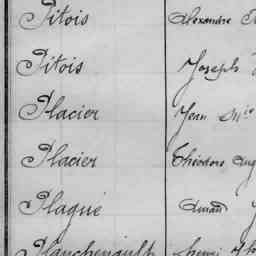 Pitois Alexandre
Pitois Joseph
Placier Jean M
Placier Théodore Aug
Plaqué Amand
Planchenault Henri